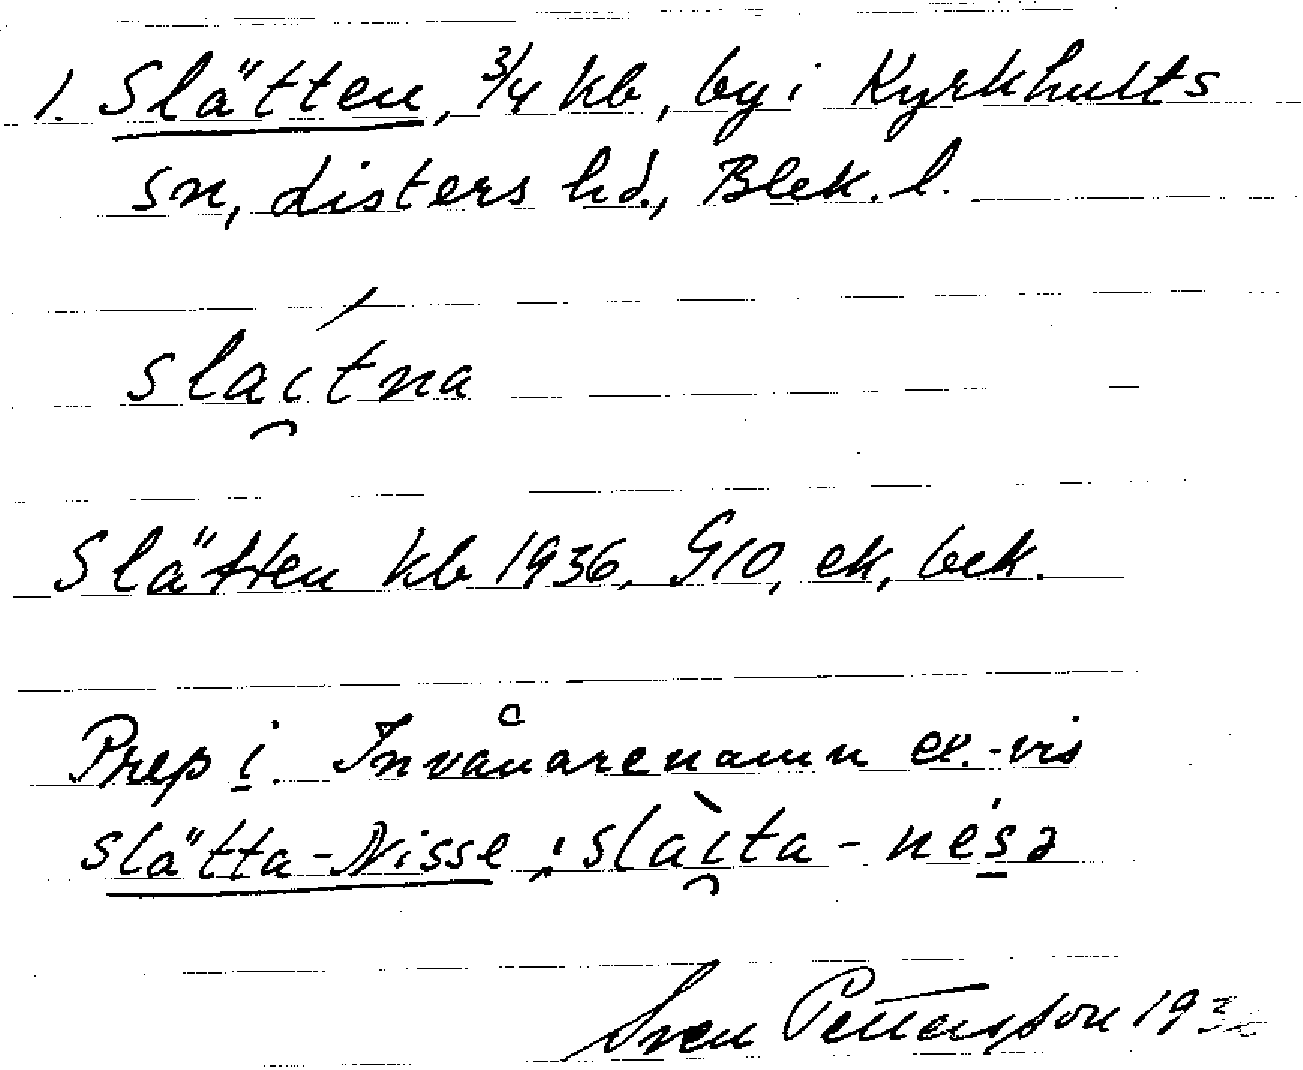 1. Slätten, 3/4 kb, by i Kyrkhults
sn, Listers hd., Blek. l.
slaí̯tna
Slätten kb 1936, G10, ek, bek.
Prep i. Invånarenamn ex.-vis
slätta-Nisse; slài̯ta-nésə
Sven Pettersson 1936